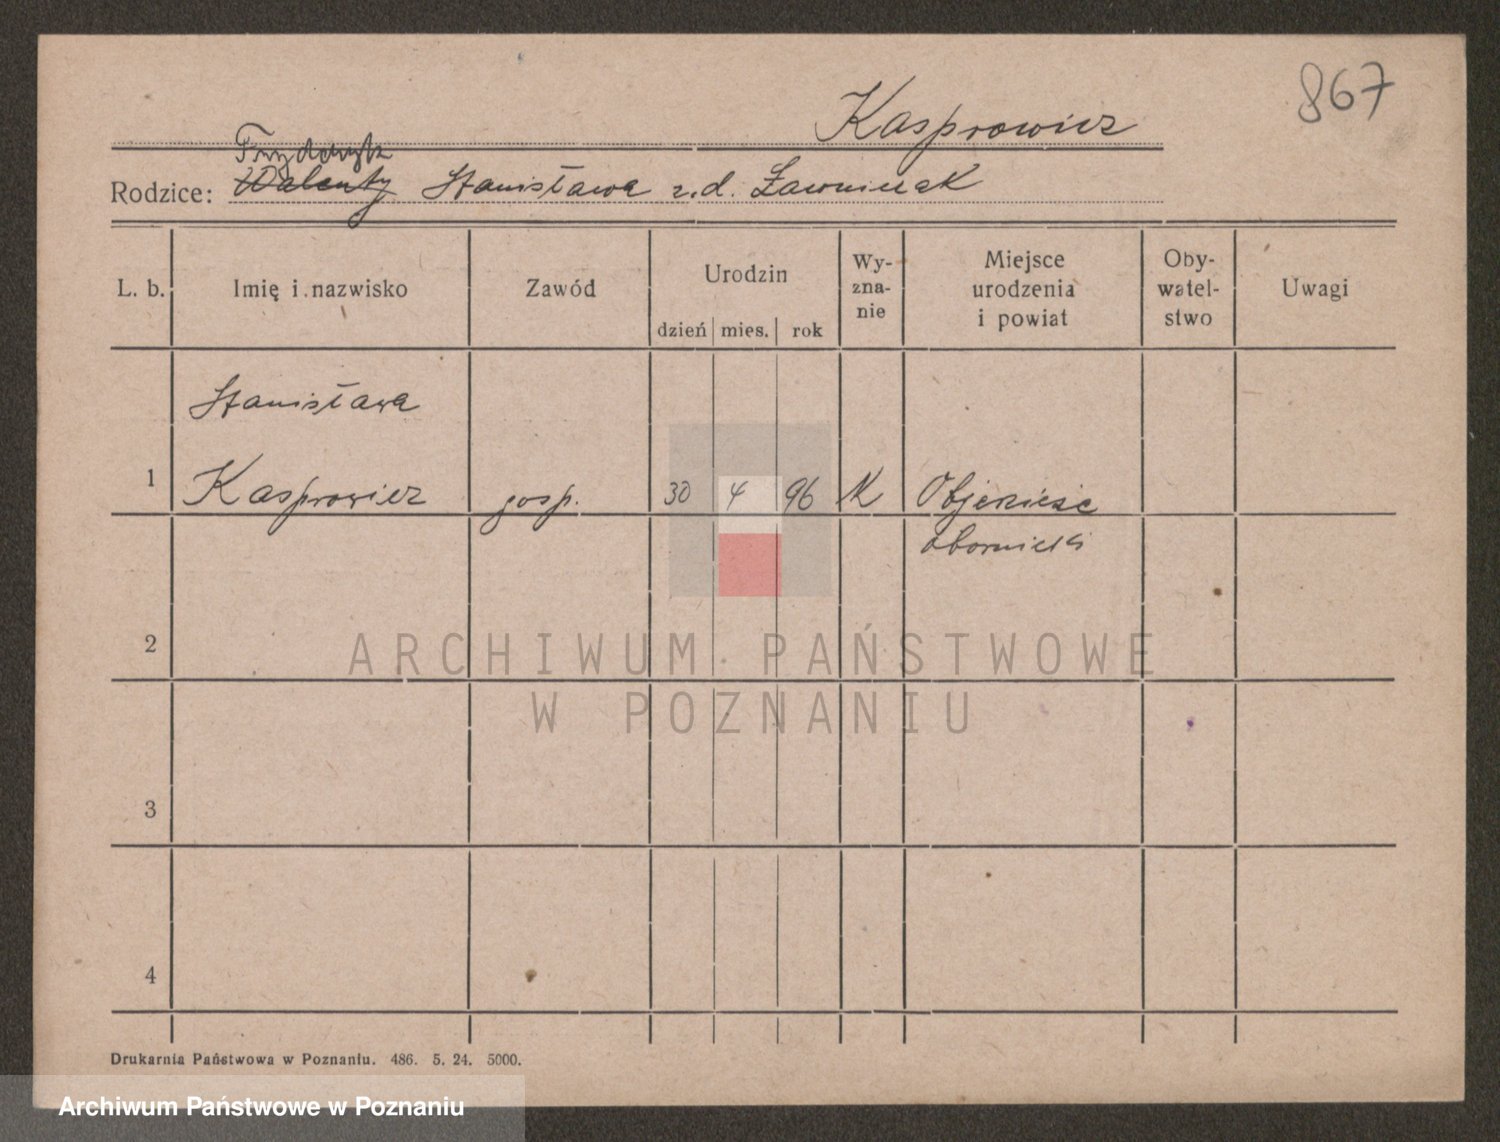 867
Kasprowicz
Fryderyk
Rodzice: Walenty Stanisława z.d. Ławniczak
L. b. Imię i nazwisko Zawód Urodzin dzień mies. rok Wy-zna-nie Miejsce urodzenia i powiat Oby-watel-stwo Uwagi
Stanisława
1 Kasprowicz gosp. 30 4 96 K Objezierze
obornicki
2
ARCHIWUM PAŃSTWOWE
W POZNANIU
3
4
Drukarnia Państwowa w Poznaniu. 486. 5. 24. 5000.
Archiwum Państwowe w Poznaniu